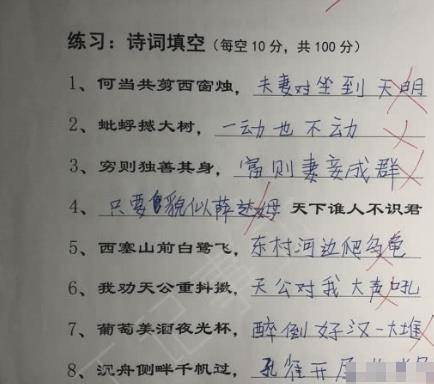 练习：诗词填空（每空10分，共100分）
1、何当共剪西窗烛，夫妻对坐到天明
2、蚍蜉撼大树，一动也不动
3、穷则独善其身，富则妻妾成群
4、只要貌似萨达姆 天下谁人不识君
5、西塞山前白鹭飞，东村河边爬乌龟
6、我劝天公重抖擞，天公对我大声吼
7、葡萄美酒夜光杯，醉倒好汉一大堆
8、沉舟侧畔千帆过，孔雀开屏